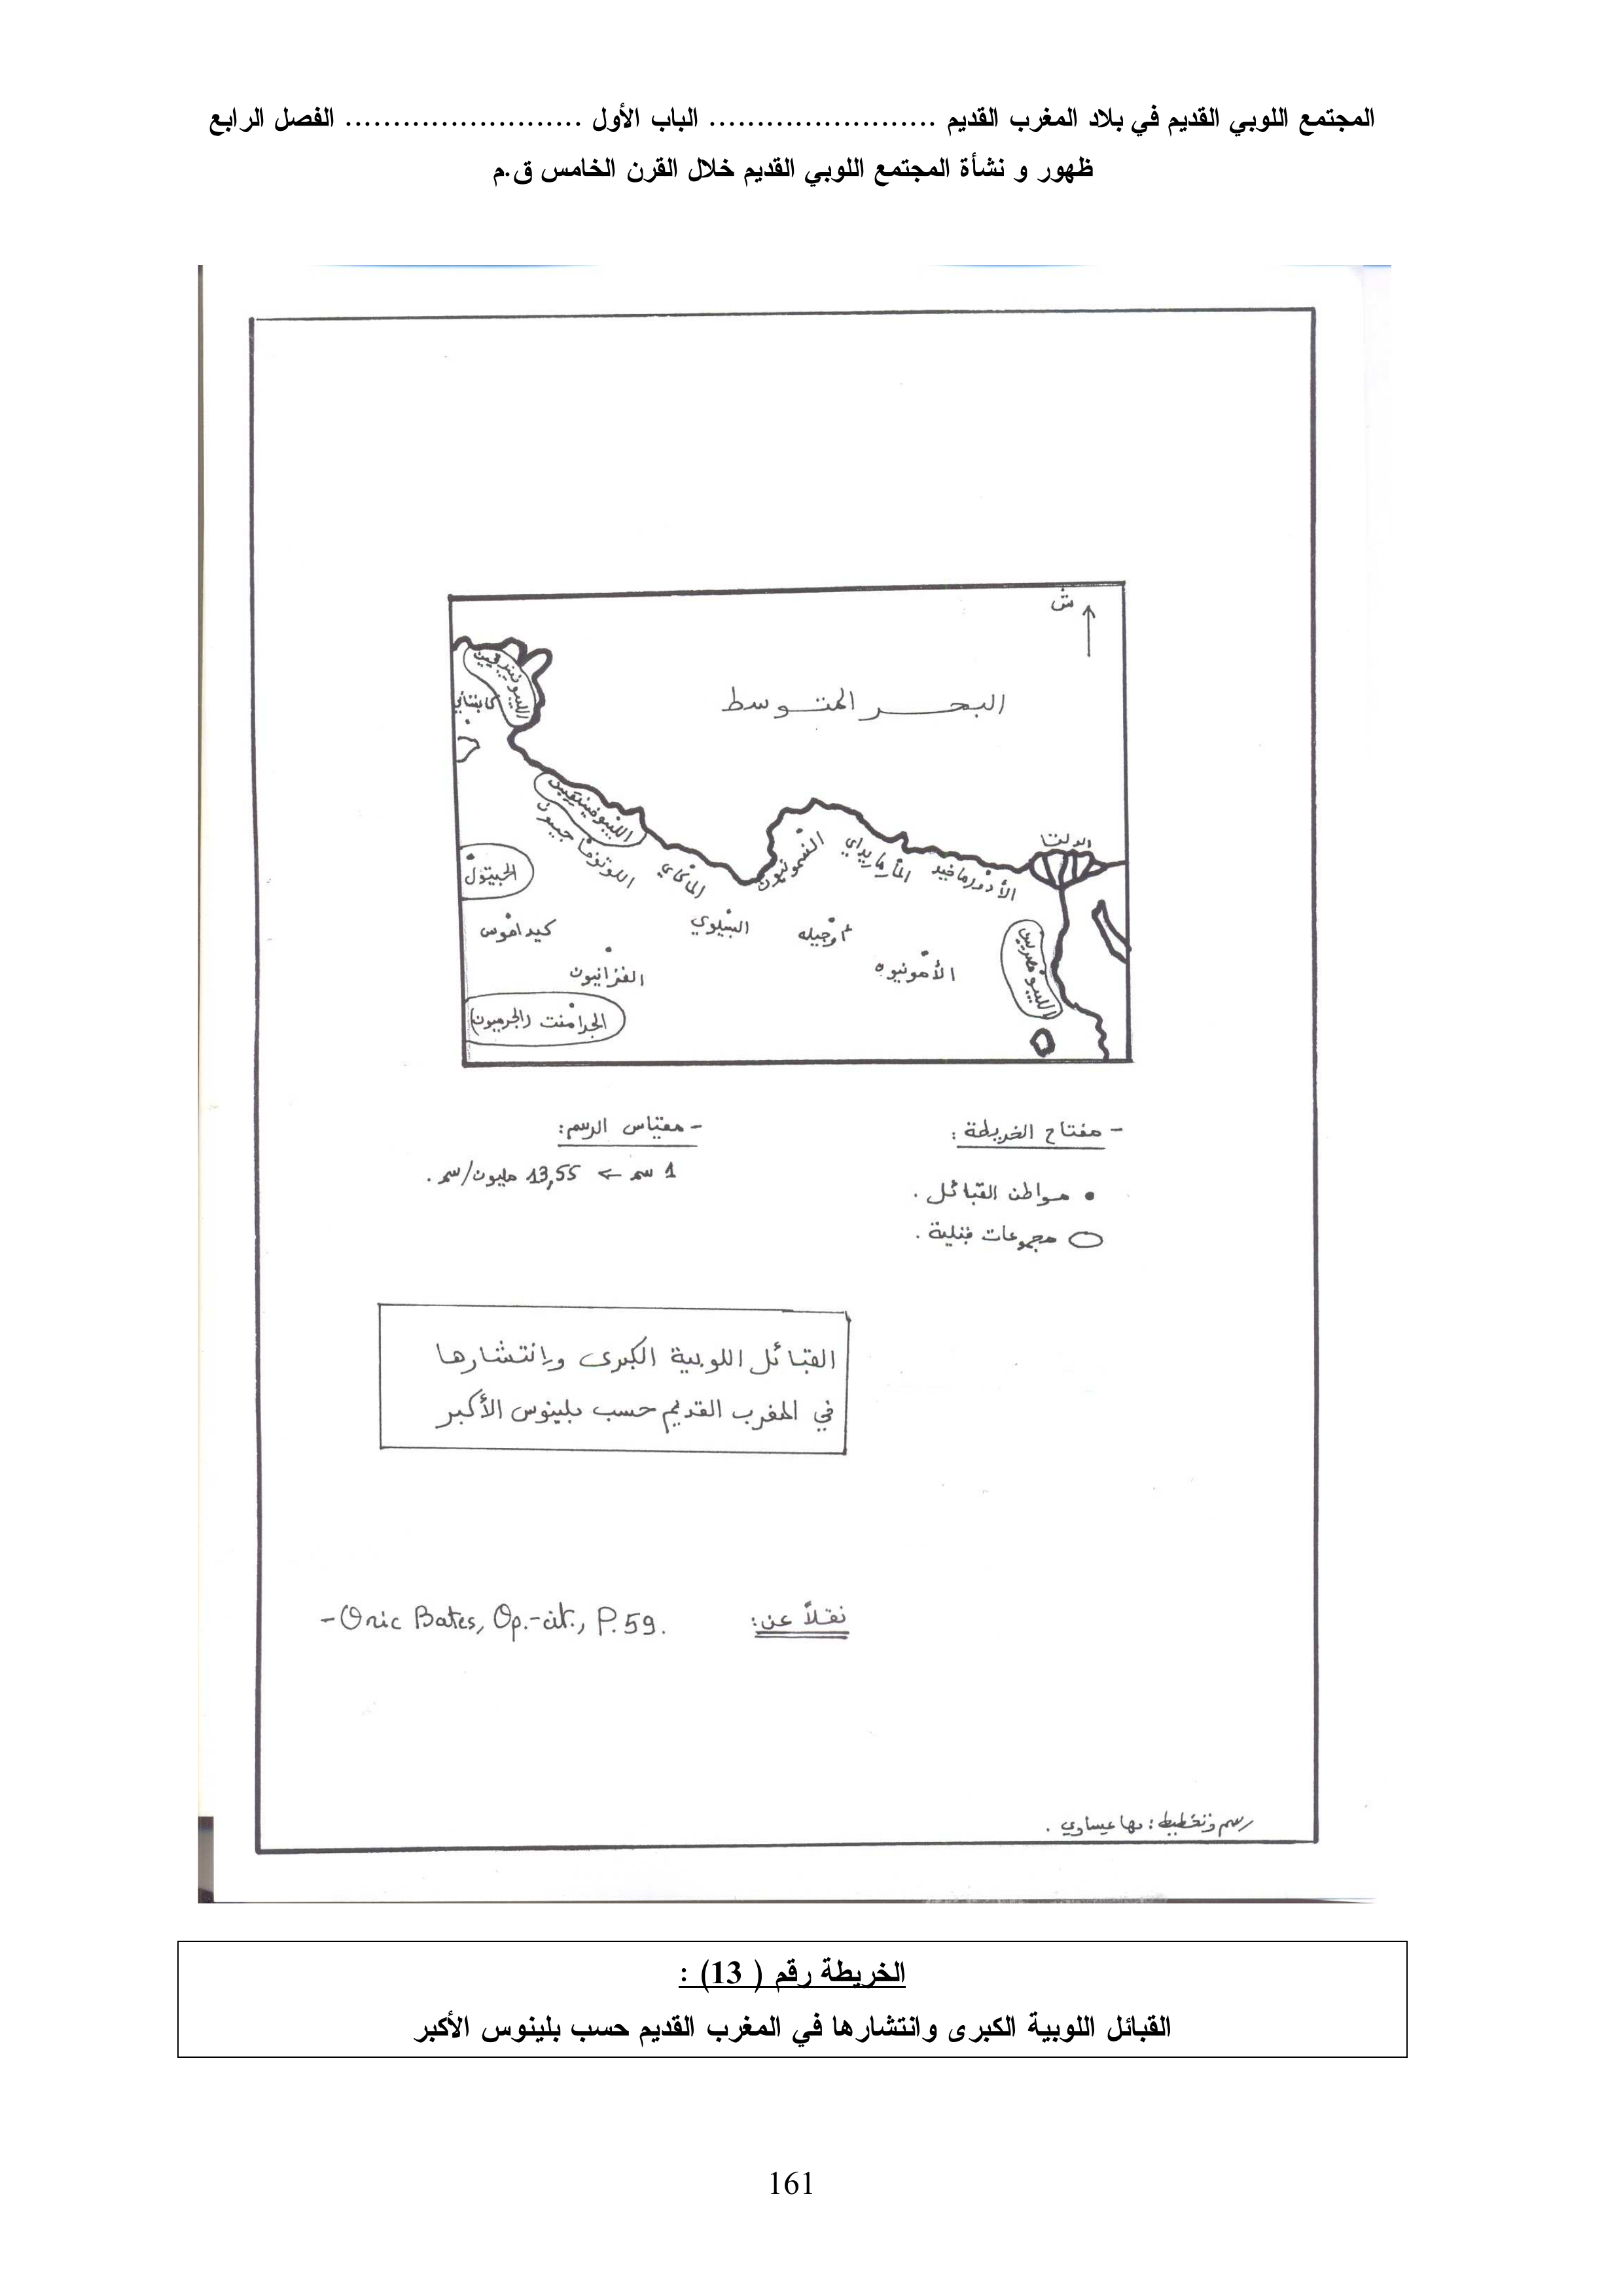 المجتمع اللوبي القديم في بلاد المغرب القديم ........................ الباب الأول ......................... الفصل الرابع
ظهور و نشأة المجتمع اللوبي القديم خلال القرن الخامس ق.م
ش
البحر المتوسط
الدلتا
الليبوفينيقيين
اللوتوفاجيون
الماكاي
المأرماريداي
الأدورماخيد
الجيتول
كيداموس
البثيلوي
أوجيله
الأمونيون
الفزانيون
الليبومصريين
الجرامنت (الجرميون)
- مفتاح الخريطة :
• مواطن القبائل .
مجموعات قبلية .
- مقياس الرسم:
1 سم ← 13,55 مليون/سم .
القبائل اللوبية الكبرى وإنتشارها
في المغرب القديم حسب بلينوس الأكبر
نقلاً عن:
- Oric Bates, Op.-cit., P.59.
رسم وتخطيط : مها عيساوي .
الخريطة رقم ( 13) :
القبائل اللوبية الكبرى وانتشارها في المغرب القديم حسب بلينوس الأكبر
161